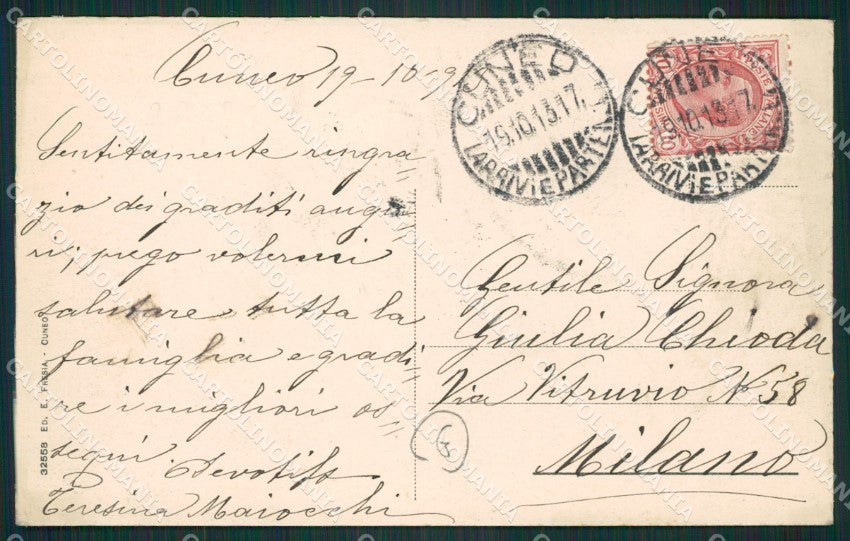 Cuneo 19-10-9
Sentitamente ringra
zio dei graditi augu
ri, prego volermi
salutare tutta la
famiglia e gradi
re i migliori os
sequi. Devotiss
Teresina Maiocchi
CUNEO
19.10.13.17.
(ARRIVI E PARTENZE
CUNEO
19.10.13.17.
(ARRIVI E PARTEN
Gentile Signora
Giulia Chioda
Via Vitruvio N 58
Milano
3
32558 ED. E. FRESIA - CUNEO
CARTOLINOMANIA